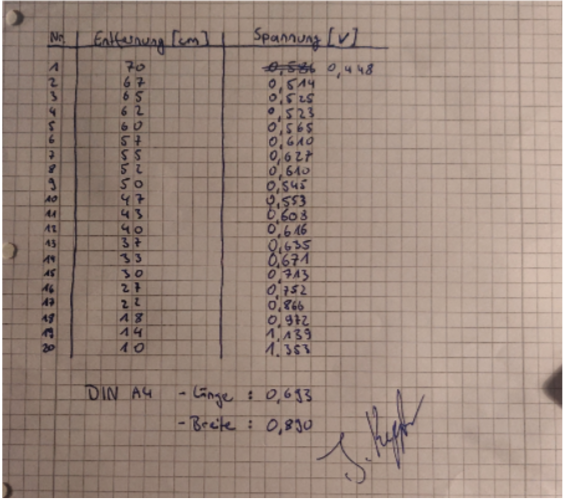 Nr. Entfernung [cm] Spannung [V]
1 70 0,448
2 67 0,514
3 65 0,525
4 62 0,523
5 60 0,565
6 57 0,610
7 55 0,627
8 52 0,610
9 50 0,545
10 47 0,553
11 43 0,603
12 40 0,616
13 37 0,635
14 33 0,671
15 30 0,713
16 27 0,752
17 22 0,866
18 18 0,972
19 14 1,139
20 10 1,353
DIN A4 - Länge : 0,693
- Breite : 0,890